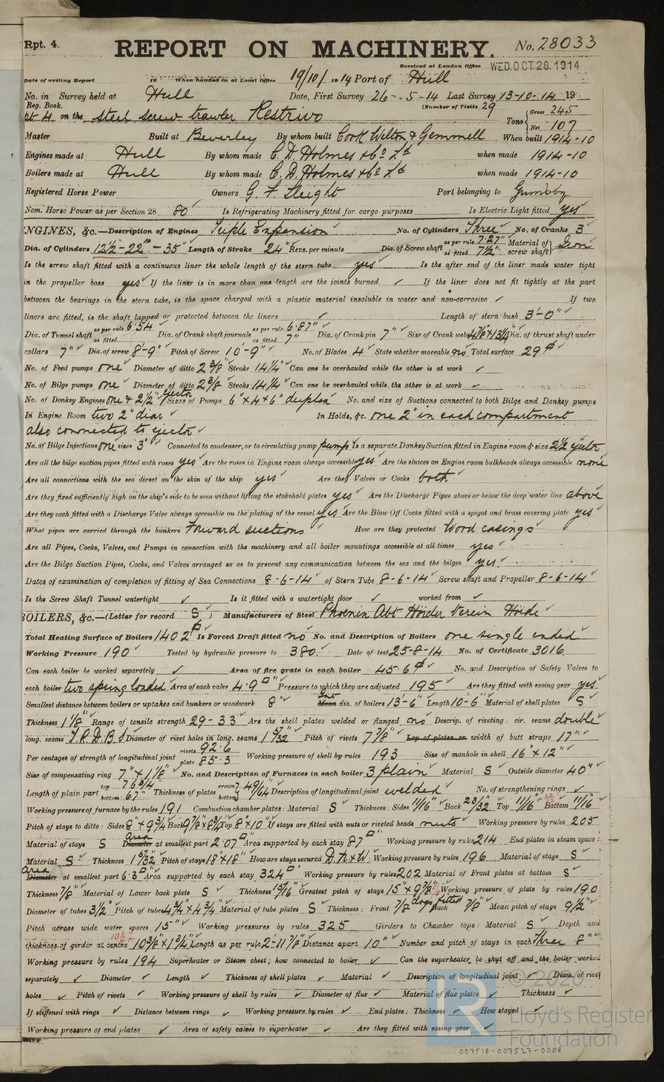 Rpt. 4. REPORT ON MACHINERY. No. 28033
Received at London Office WED. OCT. 28. 1914
Date of writing Report 19 When handed in at Local Office 19/10/1914 Port of Hull
No. in Survey held at Hull Date, First Survey 26-5-14 Last Survey 13-10-14 19
Reg. Book. (Number of Visits 29
on the steel screw trawler Restrivo Tons { Gross 245 Net 107
Master Built at Beverley By whom built Cook Welton & Gemmell When built 1914-10
Engines made at Hull By whom made C. D. Holmes & Co Ld when made 1914-10
Boilers made at Hull By whom made C. D. Holmes & Co Ld when made 1914-10
Registered Horse Power Owners G. F. Sleight Port belonging to Grimsby
Nom. Horse Power as per Section 28 80 Is Refrigerating Machinery fitted for cargo purposes Is Electric Light fitted yes
ENGINES, &c.—Description of Engines Triple Expansion No. of Cylinders Three No. of Cranks 3
Dia. of Cylinders 12½-22"-35" Length of Stroke 24" Revs. per minute Dia. of Screw shaft as per rule 7.27" as fitted 7½" Material of screw shaft } Iron
Is the screw shaft fitted with a continuous liner the whole length of the stern tube yes Is the after end of the liner made water tight
in the propeller boss yes If the liner is in more than one length are the joints burned ✓ If the liner does not fit tightly at the part
between the bearings in the stern tube, is the space charged with a plastic material insoluble in water and non-corrosive ✓ If two
liners are fitted, is the shaft lapped or protected between the liners ✓ Length of stern bush 3'-0"
Dia. of Tunnel shaft as per rule 6.54 as fitted Dia. of Crank shaft journals as per rule 6.87" as fitted 7" Dia. of Crank pin 7" Size of Crank webs 4⅞"x13½" Dia. of thrust shaft under
collars 7" Dia. of screw 8'-9" Pitch of Screw 10'-9" No. of Blades 4 State whether moveable no Total surface 29 ft
No. of Feed pumps one Diameter of ditto 2⅜" Stroke 14¼" Can one be overhauled while the other is at work ✓
No. of Bilge pumps one Diameter of ditto 2⅜" Stroke 14¼" Can one be overhauled while the other is at work ✓
No. of Donkey Engines one & 2½" ejector Sizes of Pumps 6"x4"x6" duplex No. and size of Suctions connected to both Bilge and Donkey pumps
In Engine Room two 2" diar In Holds, &c. one 2" in each compartment
also connected to ejector
No. of Bilge Injections one sizes 3" Connected to condenser, or to circulating pump pump Is a separate Donkey Suction fitted in Engine room & size 2½" ejector
Are all the bilge suction pipes fitted with roses yes Are the roses in Engine room always accessible yes Are the sluices on Engine room bulkheads always accessible none
Are all connections with the sea direct on the skin of the ship yes Are they Valves or Cocks both
Are they fixed sufficiently high on the ship's side to be seen without lifting the stokehold plates yes Are the Discharge Pipes above or below the deep water line above
Are they each fitted with a Discharge Valve always accessible on the plating of the vessel yes Are the Blow Off Cocks fitted with a spigot and brass covering plate yes
What pipes are carried through the bunkers Forward suctions How are they protected Wood casings
Are all Pipes, Cocks, Valves, and Pumps in connection with the machinery and all boiler mountings accessible at all times yes
Are the Bilge Suction Pipes, Cocks, and Valves arranged so as to prevent any communication between the sea and the bilges yes
Dates of examination of completion of fitting of Sea Connections 8-6-14 of Stern Tube 8-6-14 Screw shaft and Propeller 8-6-14
Is the Screw Shaft Tunnel watertight ✓ Is it fitted with a watertight door ✓ worked from ✓
BOILERS, &c.—(Letter for record S) Manufacturers of Steel Phoenix Abt Hörder Verein Hörde
Total Heating Surface of Boilers 1402 Is Forced Draft fitted no No. and Description of Boilers one single ended
Working Pressure 190 Tested by hydraulic pressure to 380 Date of test 25-8-14 No. of Certificate 3016
Can each boiler be worked separately ✓ Area of fire grate in each boiler 45.6 No. and Description of Safety Valves to
each boiler two spring loaded Area of each valve 4.9 Pressure to which they are adjusted 195 Are they fitted with easing gear yes
Smallest distance between boilers or uptakes and bunkers or woodwork 8" dia. of boilers 13'-6" Length 10'-6" Material of shell plates S
Thickness 1⅛" Range of tensile strength 29-33 Are the shell plates welded or flanged no Descrip. of riveting: cir. seams double
long. seams T.R.D.B.S Diameter of rivet holes in long. seams 1 5/32" Pitch of rivets 7⅞" Lap of plates or width of butt straps 17"
Per centages of strength of longitudinal joint rivets 92.6 plate 85.3 Working pressure of shell by rules 193 Size of manhole in shell 16"x12"
Size of compensating ring 7"x1⅛" No. and Description of Furnaces in each boiler 3 plain Material S Outside diameter 40"
Length of plain part top 76¾" bottom 67" Thickness of plates crown bottom 49/64 Description of longitudinal joint welded No. of strengthening rings ✓
Working pressure of furnace by the rules 191 Combustion chamber plates: Material S Thickness: Sides 11/16" Back 23/32 Top 11/16" Bottom 11/16"
Pitch of stays to ditto: Sides 8"x9¾" Back 9⅞"x8¾ Top 8"x10" If stays are fitted with nuts or riveted heads nuts Working pressure by rules 205
Material of stays S Area at smallest part 2.07 Area supported by each stay 87 Working pressure by rules 214 End plates in steam space:
Material S Thickness 1 5/32 Pitch of stays 18"x18" How are stays secured D.N & W Working pressure by rules 196 Material of stays S
Area at smallest part 6.3 Area supported by each stay 324 Working pressure by rules 202 Material of Front plates at bottom S
Thickness ⅞" Material of Lower back plate S Thickness 15/16" Greatest pitch of stays 15"x9⅞" Working pressure of plate by rules 190
Diameter of tubes 3½" Pitch of tubes 4¾"x4¾" Material of tube plates S Thickness: Front ⅞" Back ⅞" Mean pitch of stays 9½"
Pitch across wide water spaces 15" Working pressures by rules 325 Girders to Chamber tops: Material S Depth and
thickness of girder at centre 10⅝"x1¾" Length as per rule 2-11⅞" Distance apart 10" Number and pitch of stays in each three 8"
Working pressure by rules 194 Superheater or Steam chest; how connected to boiler ✓ Can the superheater be shut off and the boiler worked
separately ✓ Diameter ✓ Length ✓ Thickness of shell plates ✓ Material ✓ Description of longitudinal joint ✓ Diam. of rivet
holes ✓ Pitch of rivets ✓ Working pressure of shell by rules ✓ Diameter of flue ✓ Material of flue plates ✓ Thickness ✓
If stiffened with rings ✓ Distance between rings ✓ Working pressure by rules ✓ End plates: Thickness ✓ How stayed ✓
Working pressure of end plates ✓ Area of safety valves to superheater ✓ Are they fitted with easing gear ✓
© 2020
LR Lloyd's Register
Foundation
007518-007527-0006